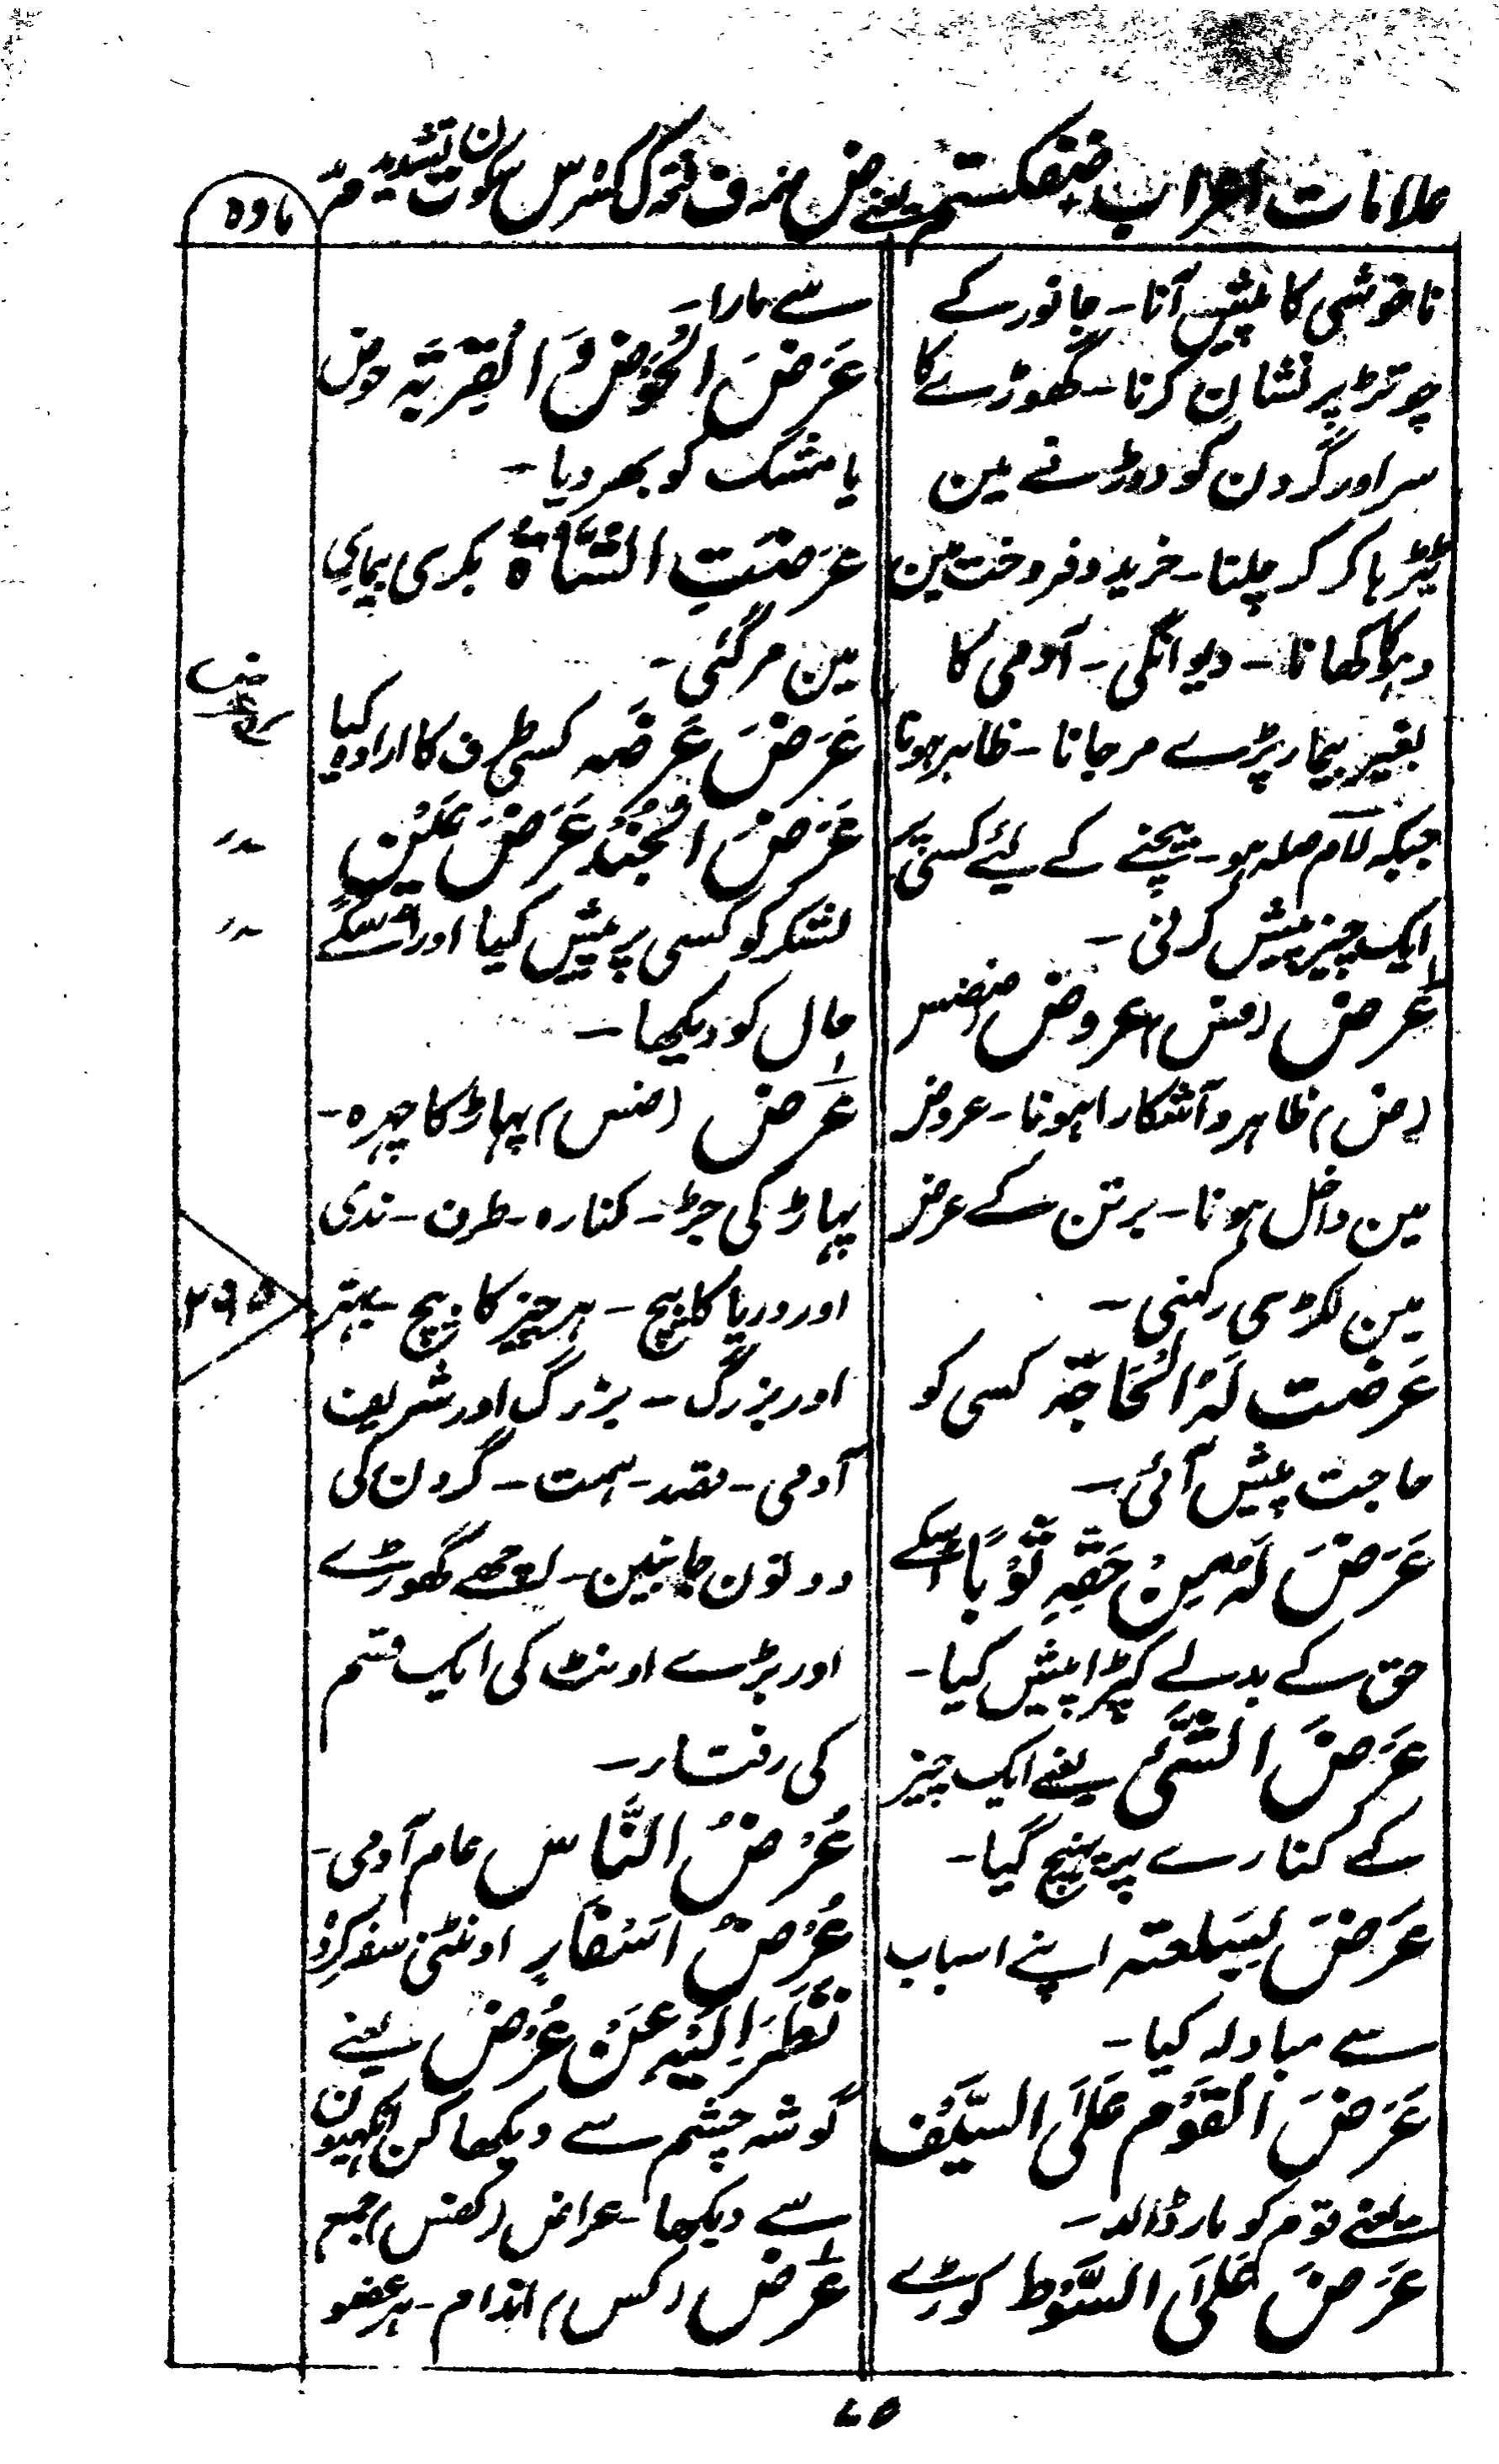 علامات اعراب ضفکستم یعنے ض ضمہ ف فتحہ ک کسرہ س سکون ت تشدید م مد
مادہ
ناخوشی کا پیش آنا۔ جانور کے
چوتڑ پر نشان کرنا۔ گھوڑے کا
سر اور گردن کو دوڑنے مین
ٹیڑہا کر کر چلنا۔ خرید و فروخت مین
دہوکا کھانا۔ دیوانگی۔ آدمی کا
بغیر بیمار پڑے مر جانا۔ ظاہر ہونا
جبکہ لام صلہ ہو۔ بیچنے کے لئے کسی پر
ایک چیز پیش کرنی۔
عرض عروض
(ض) ظاہر و آشکارا ہونا۔ عروض
مین داخل ہونا۔ برتن کے عرض
مین لکڑی رکھنی۔
عَرَضت لَہُ الْحَاجَۃ کسی کو
حاجت پیش آئی۔
عَرَضَ لَہ مِنْ حَقِّہِ ثَوْبًا اسکے
حق کے بدلے کپڑا پیش کیا۔
عَرَضَ الشَّیَٔ یعنے ایک چیز
کے کنارے پر پہنچ گیا۔
عَرَضَ بِسَلعتہ اپنے اسباب
سے مبادلہ کیا۔
عَرَضَ الْقَوْم عَلَی السَّیْف
یعنے قوم کو مار ڈالا۔
عَرَضَ عَلَی السَّوْط کوڑے
سے مارا۔
عَرَضَ الْحَوْضَ وَ الْقِرْبَۃ حوض
یا مشک کو بھر دیا۔
عَرَضَتِ الشَّاۃُ بکری بیماری
مین مر گئی۔
عَرَضَ عَرَضَہ کسی طرف کا ارادہ کیا
عَرَضَ الْجُنْدُ عَرَضَ عَیْن
لشکر کو کسی پر پیش کیا اور اسکے
حال کو دیکھا۔
عُرض (ضس) پہاڑ کا چہرہ۔
پہاڑ کی جڑ۔ کنارہ۔ طرف۔ ندی
اور دریا کا بیچ۔ ہر چیز کا بیچ۔ بہتر
اور بزرگ۔ بزرگ اور شریف
آدمی۔ قصد۔ سمت۔ گردن کی
دونون جانبین۔ بعضے گھوڑے
اور بڑے اونٹ کی ایک قسم
کی رفتار۔
عُرْضُ النَّاس عام آدمی۔
عُرْضُ اَسْفَارٍ اونٹنی سفر کرنے
نَظَرَ اِلَیْہِ عَنْ عُرْض یعنے
گوشہ چشم سے دیکھا کن انکھیون
سے دیکھا۔ عراض (کفس) جمع
عِرض (کس) اندام۔ ہر عضو
۲۹۵
۷۵